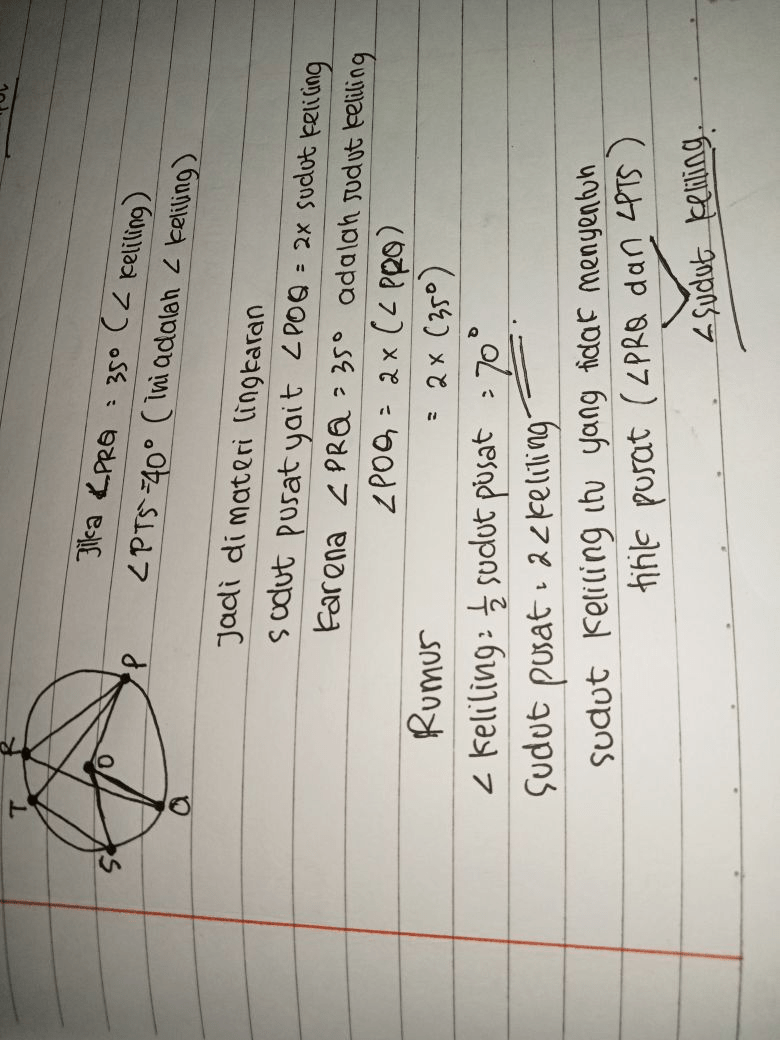 R
T
P
O
S
Q
Jika ∠PRQ = 35° (∠ keliling)
∠PTS = 40° (ini adalah ∠ keliling)
Jadi di materi lingkaran
sudut pusat yait ∠POQ = 2x sudut keliling
karena ∠PRQ = 35° adalah sudut keliling
∠POQ = 2 x (∠PRQ)
= 2 x (35°)
Rumus
∠ keliling = 1/2 sudut pusat = 70°
Sudut pusat = 2 ∠ keliling
sudut keliling itu yang tidak menyentuh
titik pusat (∠PRQ dan ∠PTS)
∠ sudut keliling.